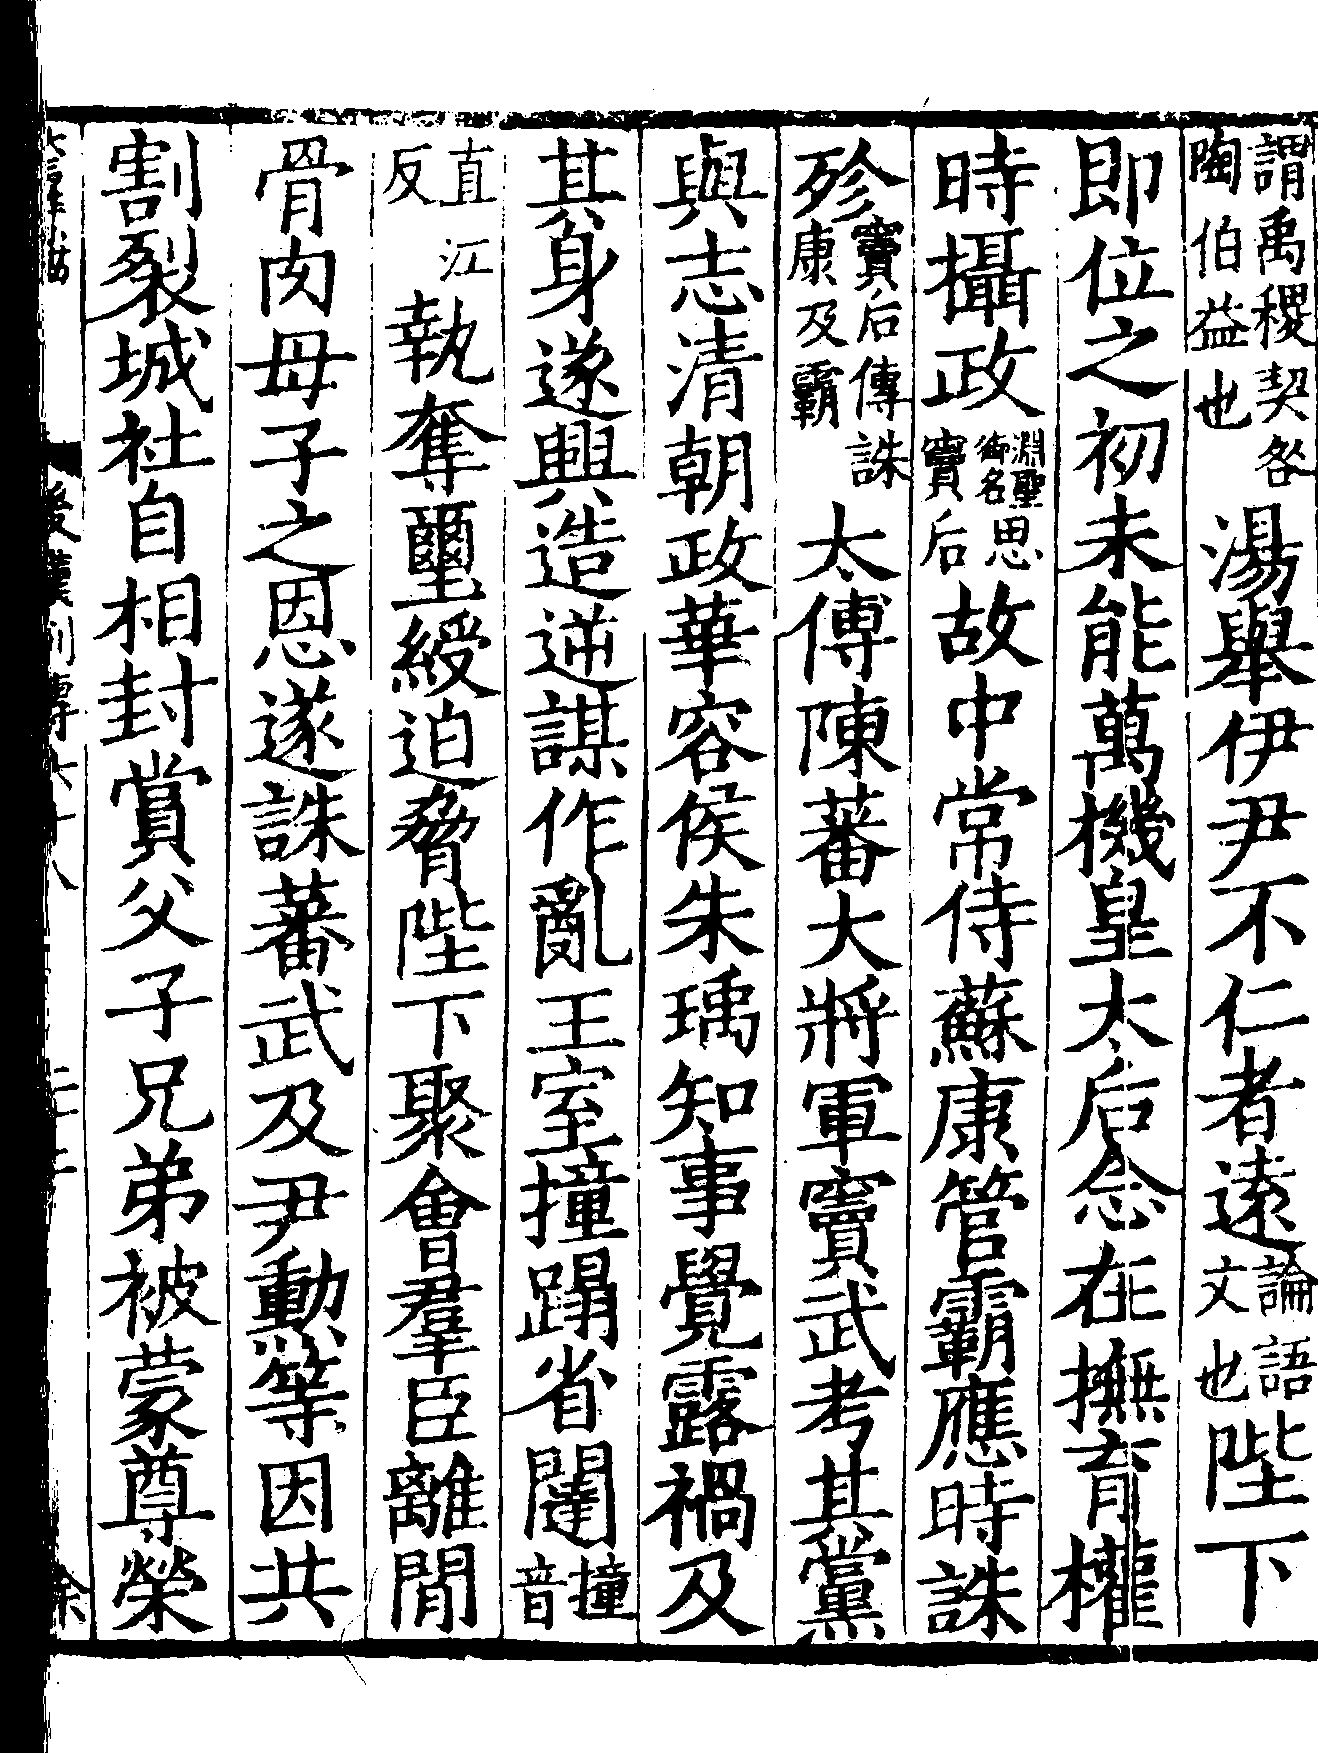 謂禹稷契咎陶伯益也湯舉伊尹不仁者遠論語文也陛下
即位之初未能萬機皇太后念在撫育權
時攝政淵聖御名思竇后故中常侍蘇康管霸應時誅
殄竇后傳誅康及霸太傅陳蕃大將軍竇武考其黨
與志清朝政華容侯朱瑀知事覺露禍及
其身遂興造逆謀作亂王室撞蹋省闥撞音
直江反執奪璽綬迫脅陛下聚會羣臣離閒
骨肉母子之恩遂誅蕃武及尹勳等因共
割裂城社自相封賞父子兄弟被蒙尊榮
後漢列傳六十八
余